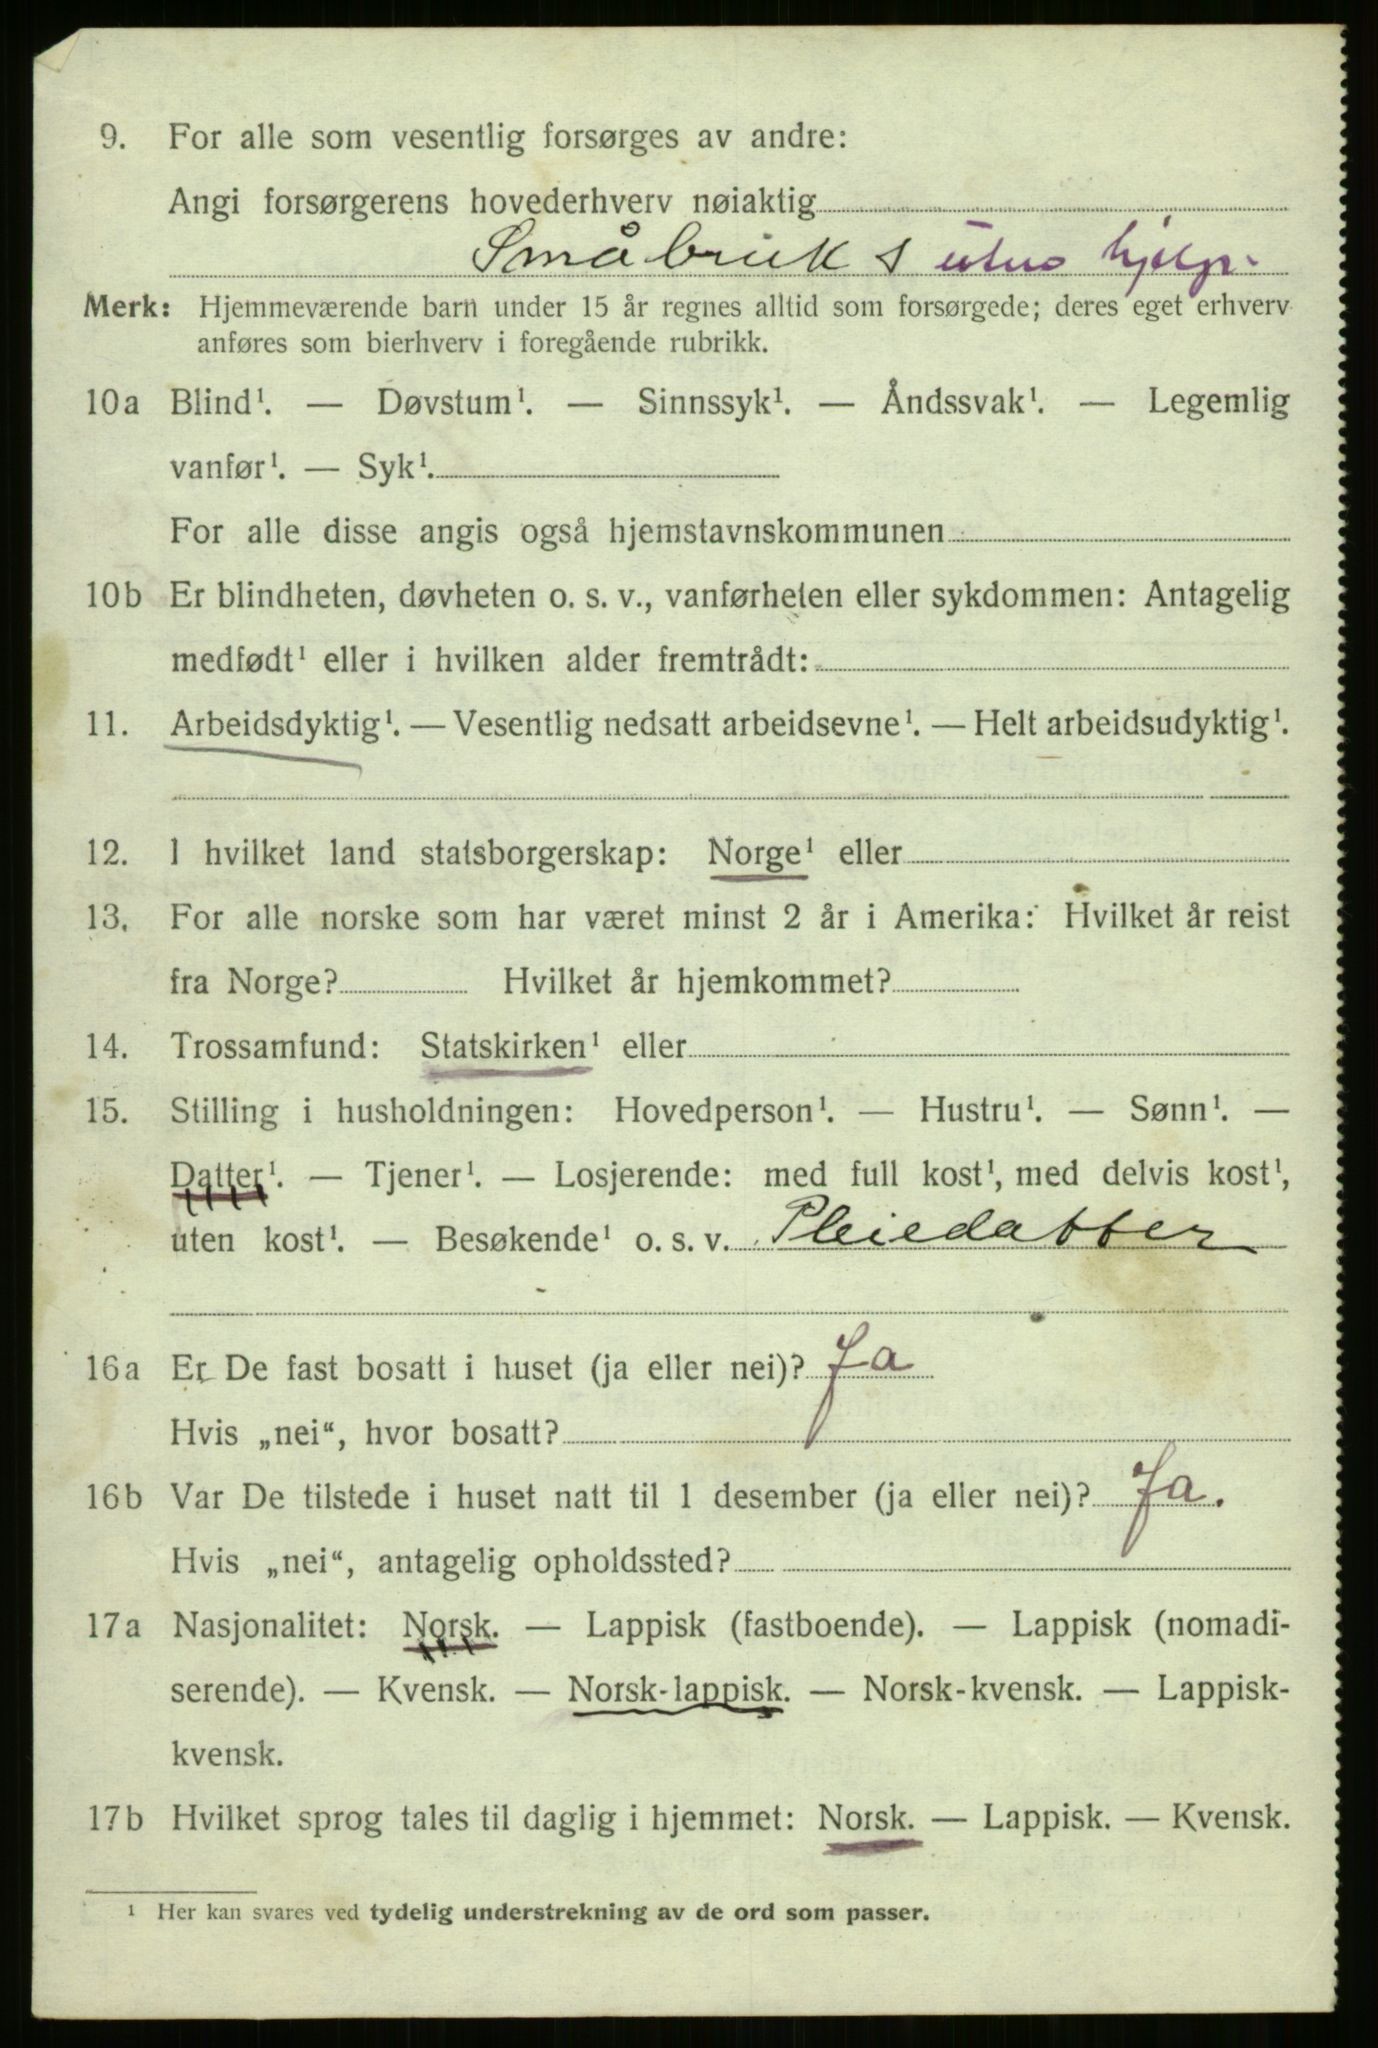 9. For alle som vesentlig forsørges av andre:
Angi forsørgerens hovederhverv nøiaktig
Småbruk s uten hjelp.
Merk: Hjemmeværende barn under 15 år regnes alltid som forsørgede; deres eget erhverv
anføres som bierhverv i foregående rubrikk.
10a Blind¹. — Døvstum¹. — Sinnssyk¹. — Åndssvak¹. — Legemlig
vanfør¹. — Syk¹.
For alle disse angis også hjemstavnskommunen
10b Er blindheten, døvheten o. s. v., vanførheten eller sykdommen: Antagelig
medfødt¹ eller i hvilken alder fremtrådt:
11. Arbeidsdyktig¹. — Vesentlig nedsatt arbeidsevne¹. — Helt arbeidsudyktig¹.
12. I hvilket land statsborgerskap: Norge¹ eller
13. For alle norske som har været minst 2 år i Amerika: Hvilket år reist
fra Norge? Hvilket år hjemkommet?
14. Trossamfund: Statskirken¹ eller
15. Stilling i husholdningen: Hovedperson¹. — Hustru¹. — Sønn¹. —
Datter¹. — Tjener¹. — Losjerende: med full kost¹, med delvis kost¹,
uten kost¹. — Besøkende¹ o. s. v. Pleiedatter
16a Er De fast bosatt i huset (ja eller nei)? Ja
Hvis „nei“, hvor bosatt?
16b Var De tilstede i huset natt til 1 desember (ja eller nei)? Ja.
Hvis „nei“, antagelig opholdssted?
17a Nasjonalitet: Norsk. — Lappisk (fastboende). — Lappisk (nomadi-
serende). — Kvensk. — Norsk-lappisk. — Norsk-kvensk. — Lappisk-
kvensk.
17b Hvilket sprog tales til daglig i hjemmet: Norsk. — Lappisk. — Kvensk.
¹ Her kan svares ved tydelig understrekning av de ord som passer.